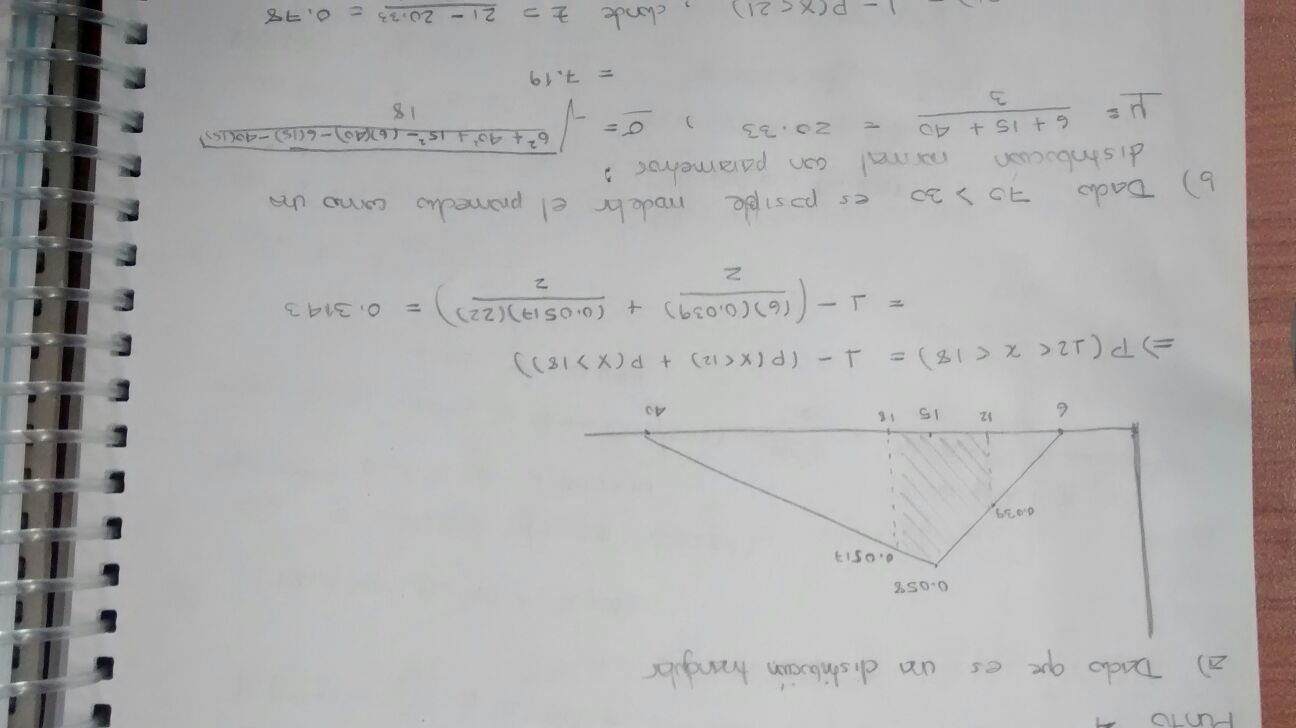 Punto 1
a) Dado que es una distribución triangular
0.058
0.0517
0.039
6 12 15 18 40
=> P(12 < x < 18) = 1 - (P(x<12) + P(x>18))
= 1 - ((6)(0.039)/2 + (0.0517)(22)/2) = 0.3143
b) Dado 70 > 30 es posible modelar el promedio como una
distribución normal con parametros:
μ = 6 + 15 + 40 / 3 = 20.33 , σ = √(6² + 40² + 15² - (6)(40) - 6(15) - 40(15) / 18)
= 7.19
1 - P(x<21) , donde z = 21 - 20.33 = 0.78